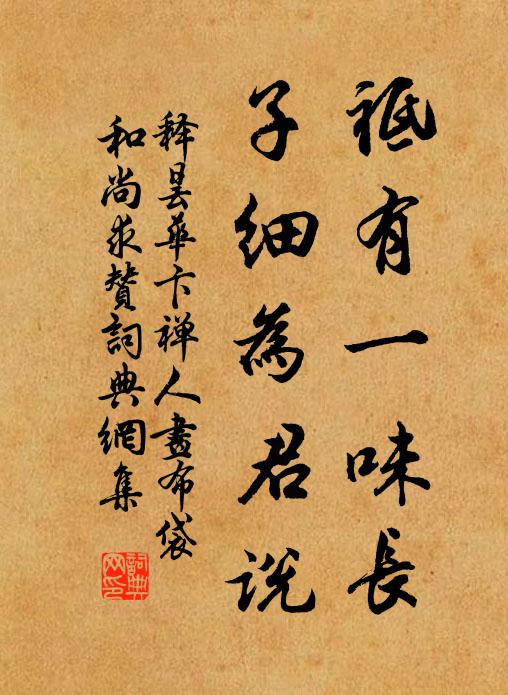 祗有一味長
子細為君説
释曇華卞禅人畫布袋
和尚求贊詞典網集
詞典网印